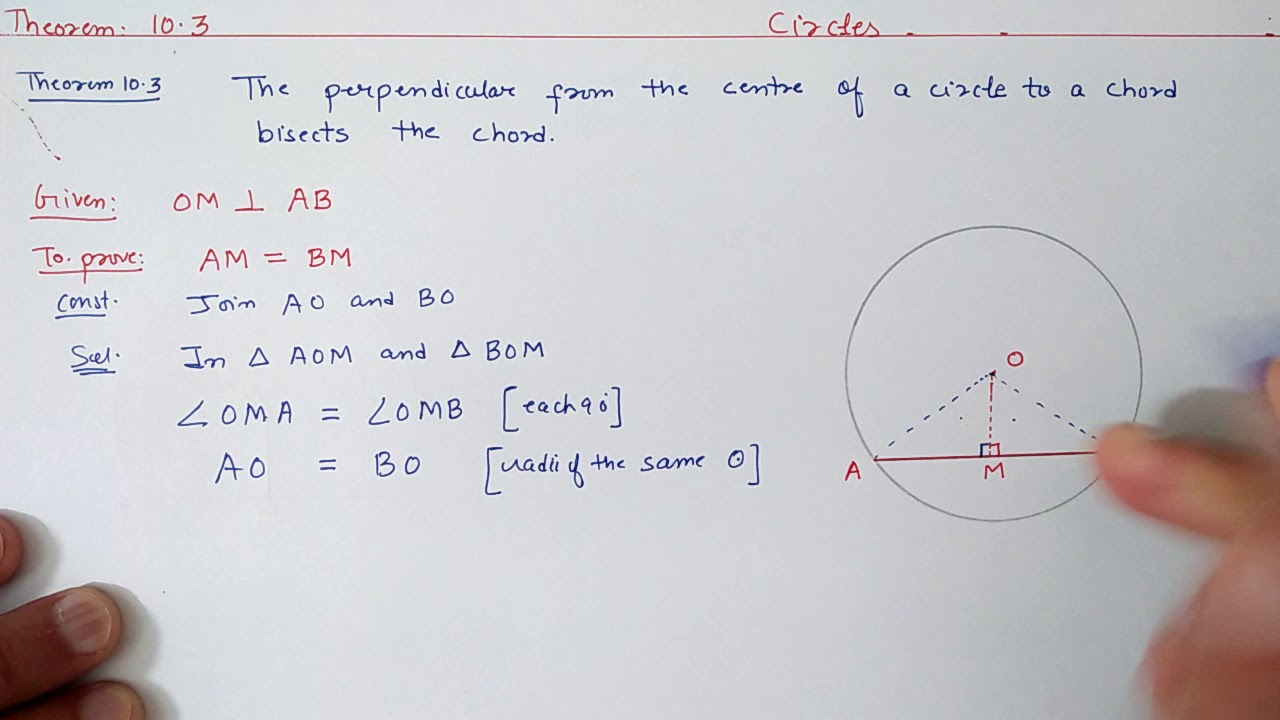 Theorem: 10.3 Circles
Theorem 10.3 The perpendicular from the centre of a circle to a chord
bisects the chord.
Given: OM ⊥ AB
To. prove: AM = BM
Const. Join AO and BO
Sol. In △ AOM and △ BOM
∠OMA = ∠OMB [each 90°]
AO = BO [radii of the same ⊙]
O
A
M